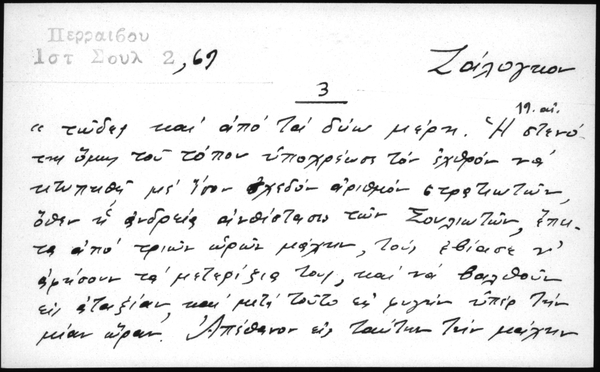 Περραιβου
Ιστ Σουλ 2, 67
Ζάλογκον
3
19. αἰ.
"τῶδες καί ἀπό τά δύω μέρη. Ἡ στενό
της ὅμως τοῦ τόπου ὑποχρέωσε τόν ἐχθρόν νά
κτυπηθῇ μέ ἴσον σχεδόν ἀριθμόν στρατιωτῶν,
ὅθεν ἡ ἀνδρεία ἀνθίστασις τῶν Σουλιωτῶν, ἔπει-
τα ἀπό τριῶν ὡρῶν μάχην, τούς ἐβίασε ν'
ἀφήσουν τά μετερίζια των, καί νά βαλθοῦν
εἰς ἀταξίαν, καί μετά τοῦτο εἰς φυγήν ὑπέρ τήν
μίαν ὥραν. Ἀπέθανον εἰς ταύτην τήν μάχην